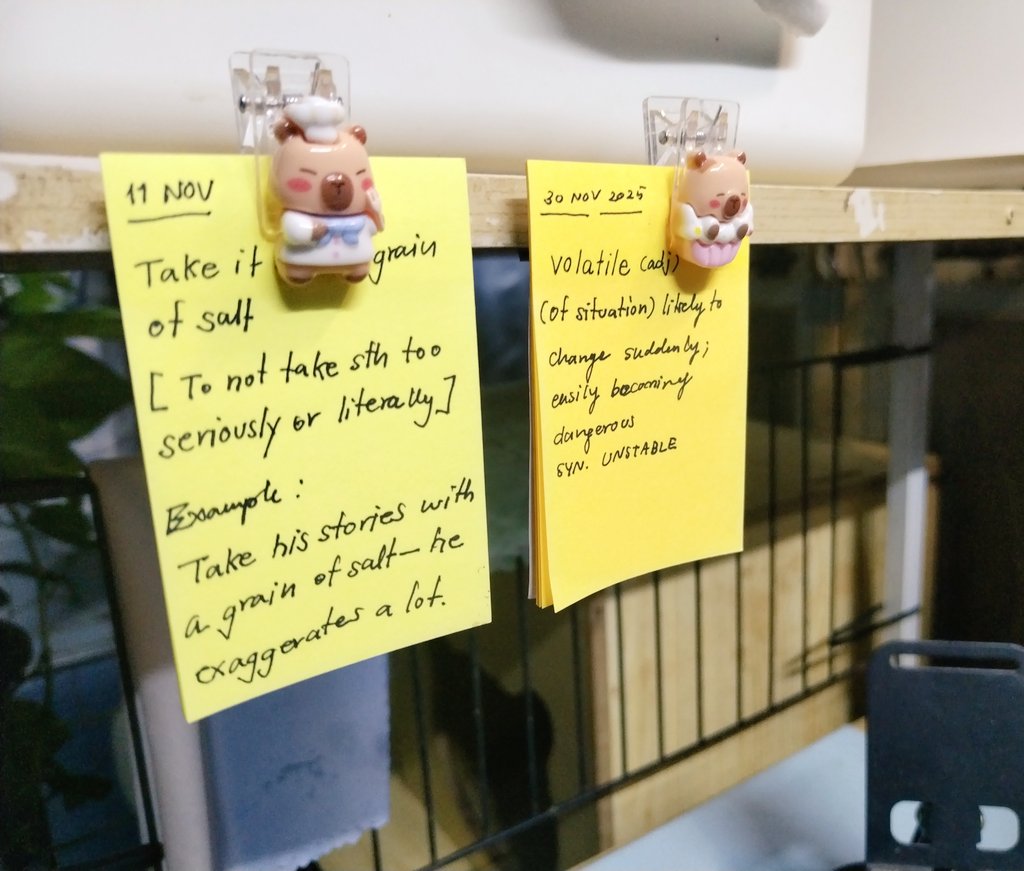 11 NOV
Take it grain
of salt
[To not take sth too
seriously or literally]
Example:
Take his stories with
a grain of salt—he
exaggerates a lot.
30 NOV 2025
volatile (adj)
(of situation) likely to
change suddenly;
easily becoming
dangerous
SYN. UNSTABLE